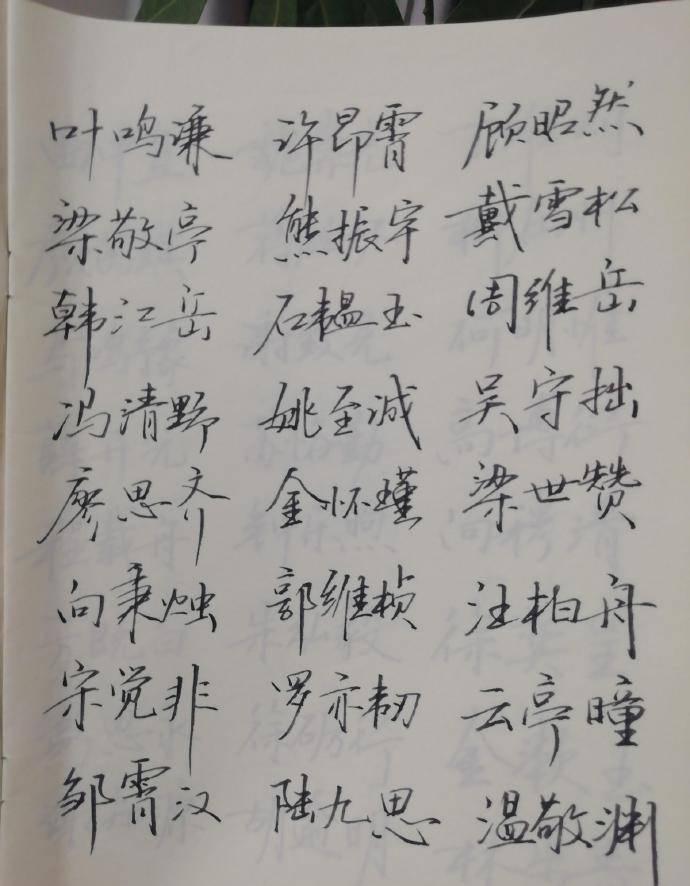 叶鸣谦 许昂霄 顾昭然
梁敬亭 熊振宇 戴雪松
韩江岳 石韫玉 周维岳
冯清野 姚至诚 吴守拙
廖思齐 金怀瑾 梁世赞
向秉烛 郭维桢 汪柏舟
宋觉非 罗亦韧 云亭瞳
邹霄汉 陆九思 温敬渊